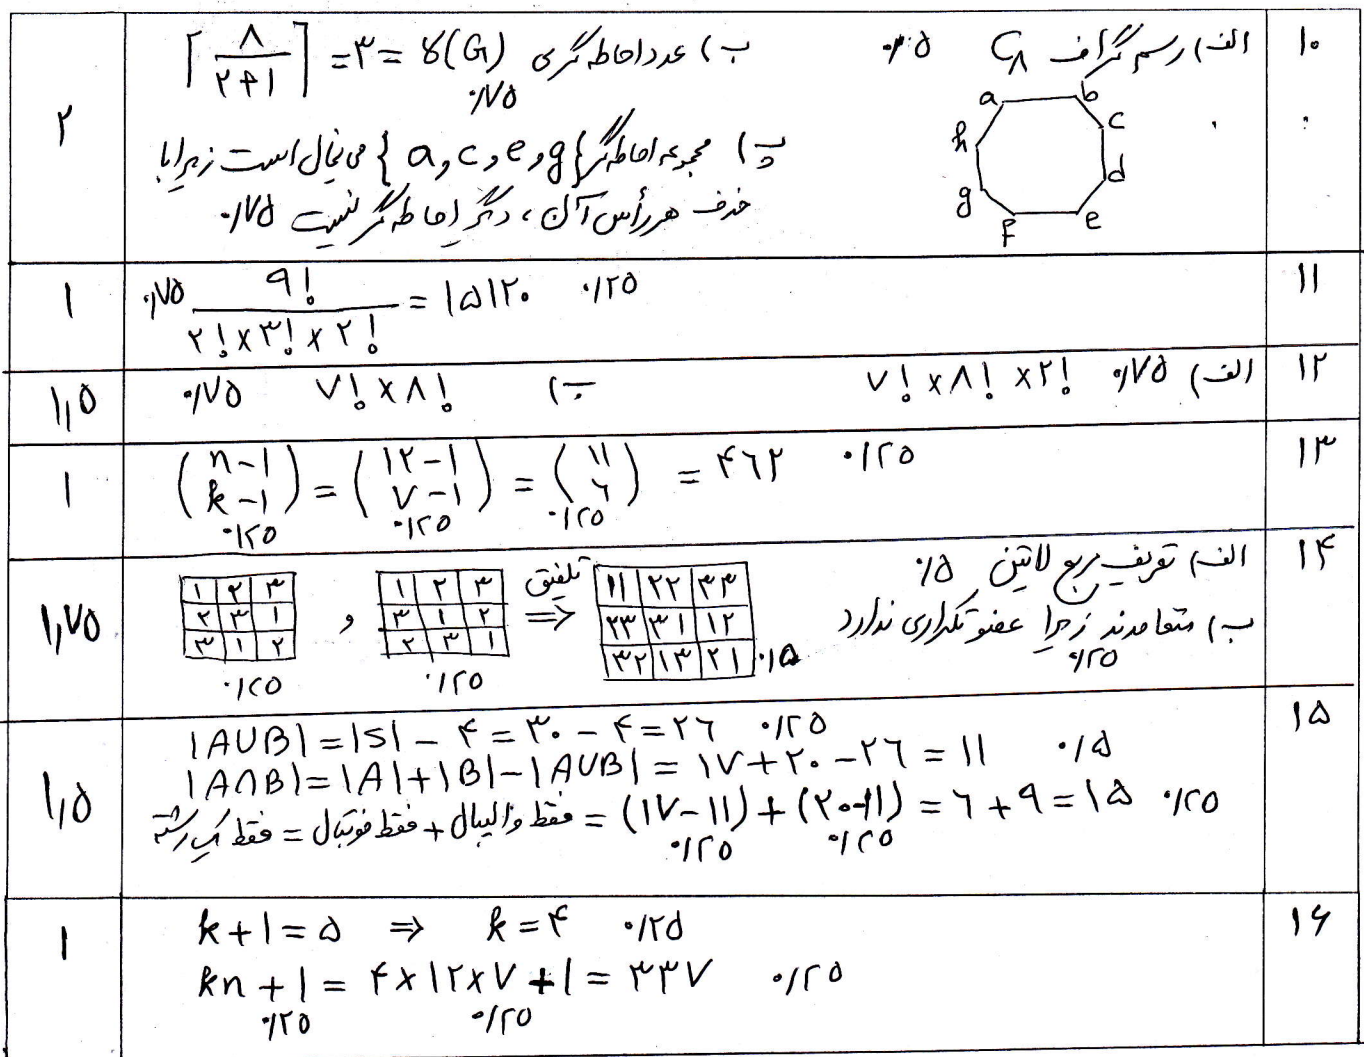 ۱۰
الف) رسم گراف C۸ ۰/۵
a b c d e f g h
ب) عدد احاطه گری γ(G) = ۳ = ⌈۸/(۲+۱)⌉
۰/۷۵
پ) مجموعه احاطه گر {a, c, e, g} می نیمال است زیرا با
حذف هر رأس آن، دیگر احاطه گر نیست ۰/۷۵
۲
۱۱
۰/۷۵ ۹!/(۲! × ۳! × ۲!) = ۱۵۱۲۰ ۰/۲۵
۱
۱۲
الف) ۷! × ۸! × ۲! ۰/۷۵
ب) ۷! × ۸! ۰/۷۵
۱,۵
۱۳
(n-1 k-1) = (۱۲-۱ ۷-۱) = (۱۱ ۶) = ۴۶۲ ۰/۲۵
۰/۲۵ ۰/۲۵ ۰/۲۵
۱
۱۴
الف) تعریف مربع لاتین ۰/۵
ب) متعامدند زیرا عضو تکراری ندارد
۰/۲۵
۱ ۲ ۳
۲ ۳ ۱
۳ ۱ ۲
۰/۲۵
و
۱ ۲ ۳
۳ ۱ ۲
۲ ۳ ۱
۰/۲۵
تلفیق
⇒
۱۱ ۲۲ ۳۳
۲۳ ۳۱ ۱۲
۳۲ ۱۳ ۲۱
۰/۵
۱,۷۵
۱۵
|A∪B| = |S| - ۴ = ۳۰ - ۴ = ۲۶ ۰/۲۵
|A∩B| = |A| + |B| - |A∪B| = ۱۷ + ۲۰ - ۲۶ = ۱۱ ۰/۵
فقط یک رشته = فقط فوتبال + فقط والیبال = (۱۷-۱۱) + (۲۰-۱۱) = ۶ + ۹ = ۱۵ ۰/۲۵
۰/۲۵ ۰/۲۵
۱,۵
۱۶
k+1 = ۵ ⇒ k = ۴ ۰/۲۵
kn + 1 = ۴ × ۱۲ × ۷ + ۱ = ۳۳۷ ۰/۲۵
۰/۲۵ ۰/۲۵
۱